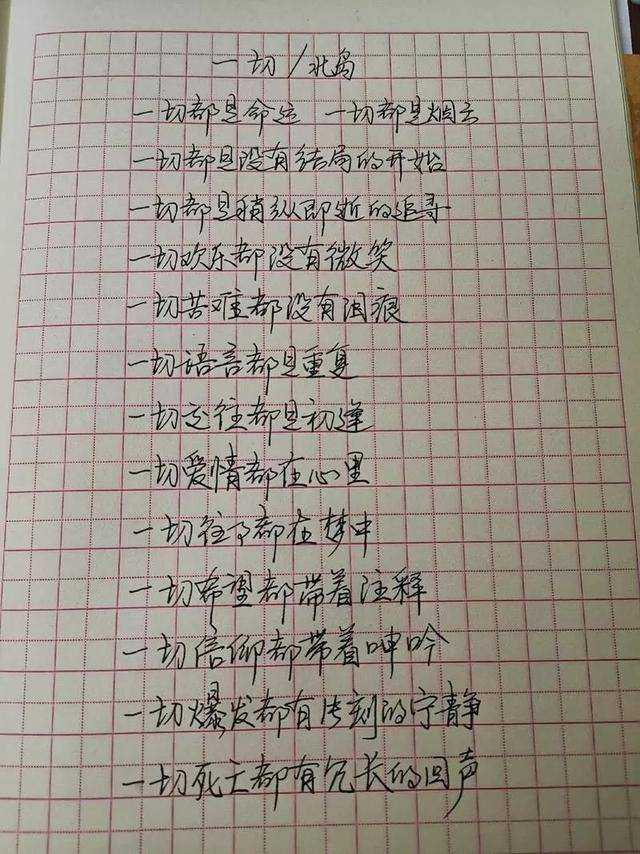 一切/北岛
一切都是命运 一切都是烟云
一切都是没有结局的开始
一切都是稍纵即逝的追寻
一切欢乐都没有微笑
一切苦难都没有泪痕
一切语言都是重复
一切交往都是初逢
一切爱情都在心里
一切往事都在梦中
一切希望都带着注释
一切信仰都带着呻吟
一切爆发都有片刻的宁静
一切死亡都有冗长的回声